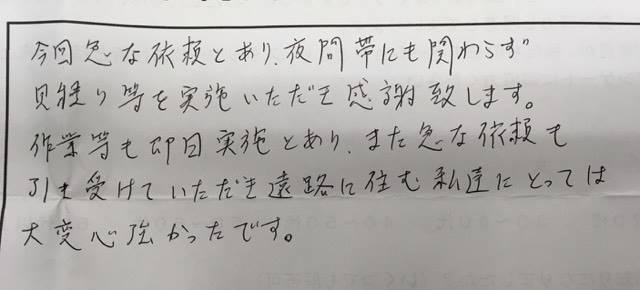 今回急な依頼とあり、夜間帯にも関わらず
見積り等を実施いただき感謝致します。
作業等も即日実施とあり、また急な依頼も
引き受けていただき遠路に住む私達にとっては
大変心強かったです。